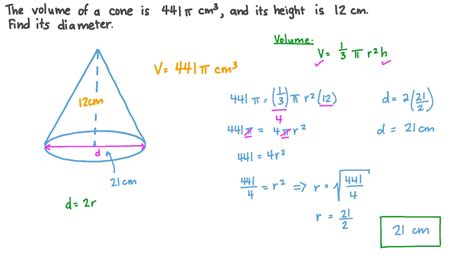 The volume of a cone is 441π cm³, and its height is 12 cm.
Find its diameter.
Volume:
V = 1/3 π r² h
V = 441π cm³
12cm
d
21 cm
d = 2r
441π = (1/3) π r² (12)
4
441π = 4π r²
441 = 4r²
441/4 = r² ⟹ r = √(441/4)
r = 21/2
d = 2(21/2)
d = 21 cm
21 cm